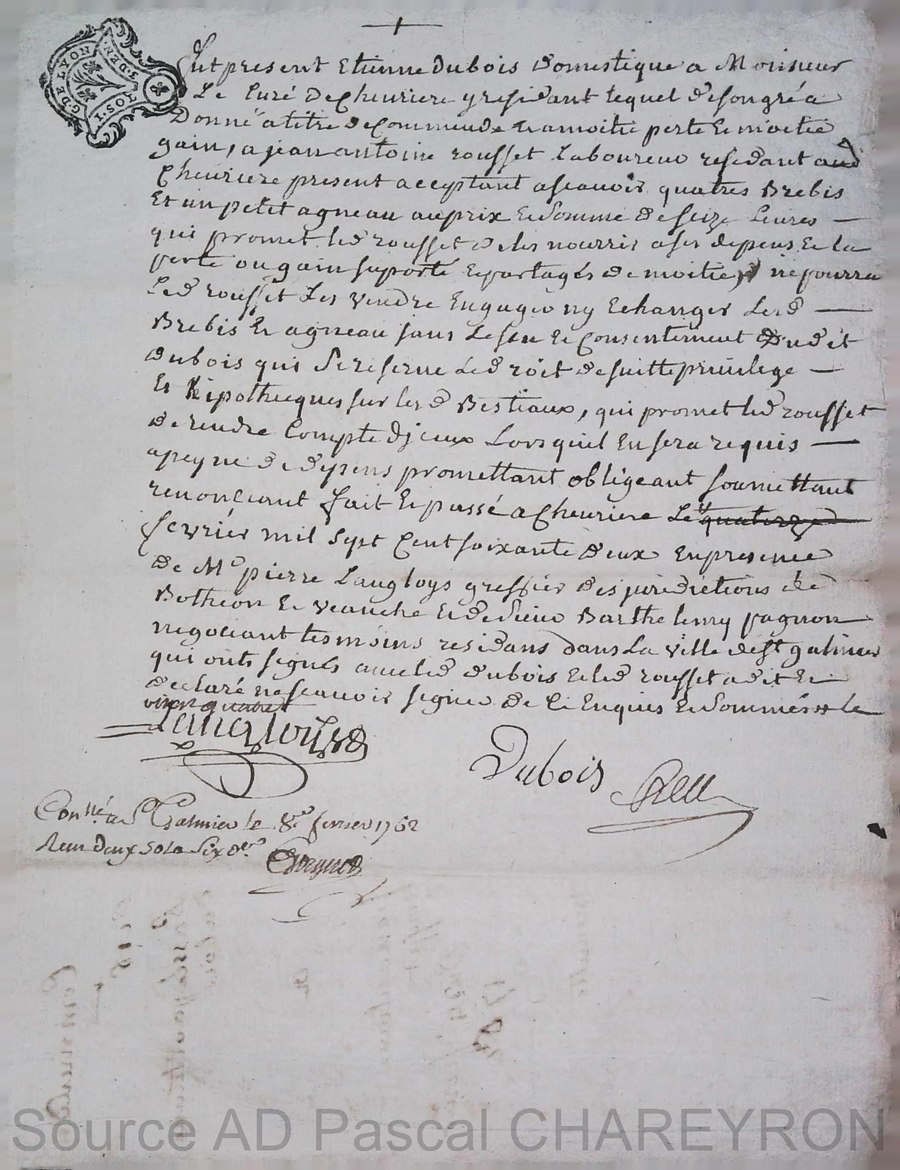 G. DE LYON
1. SOL 3. DEN.
Fut present Etienne dubois domestique a Monsieur
Le Curé de Cheuriere y residant lequel de son gré a
Donné a titre de Commende a moitié perte et moitié
gain, a jean antoine rousset Laboureur residant aud
Cheuriere present acceptant ascauoir quatres Brebis
Et un petit agneau au prix et somme de seize Liures —
qui promet led rousset de les nourrir a ses depens et la
perte ou gain suporté et partagés de moitie, ne pourra
Led rousset Les vendre Engager ny Echanger Lesd —
Brebis et agneau sans Le sceu et Consentement dudit
dubois qui se reserue Le droit de suitte priuilege —
Et hipothecques sur lesd Bestiaux, qui promet led rousset
de rendre Compte djceux Lors quil En sera requis —
a peyne de depens promettant obligeant soumettant
renonciant fait et passé a cheuriere Le quatorze
fevrier mil sept Cent soixante deux en presence
de Me pierre Langloys greffier des juridictions de
Botheon et veauche et de sieur Barthelemy pagnon
negociant tesmoins residans dans La ville de St galmier
qui onts signés auec led dubois et led rousset a dit et
declaré ne scauoir signer de ce Enquis et sommés le
vingt quatre
Langloys
Dubois
Conllé a St Galmier le 8e fevrier 1762
Receu douze sols six drs
Source AD Pascal CHAREYRON